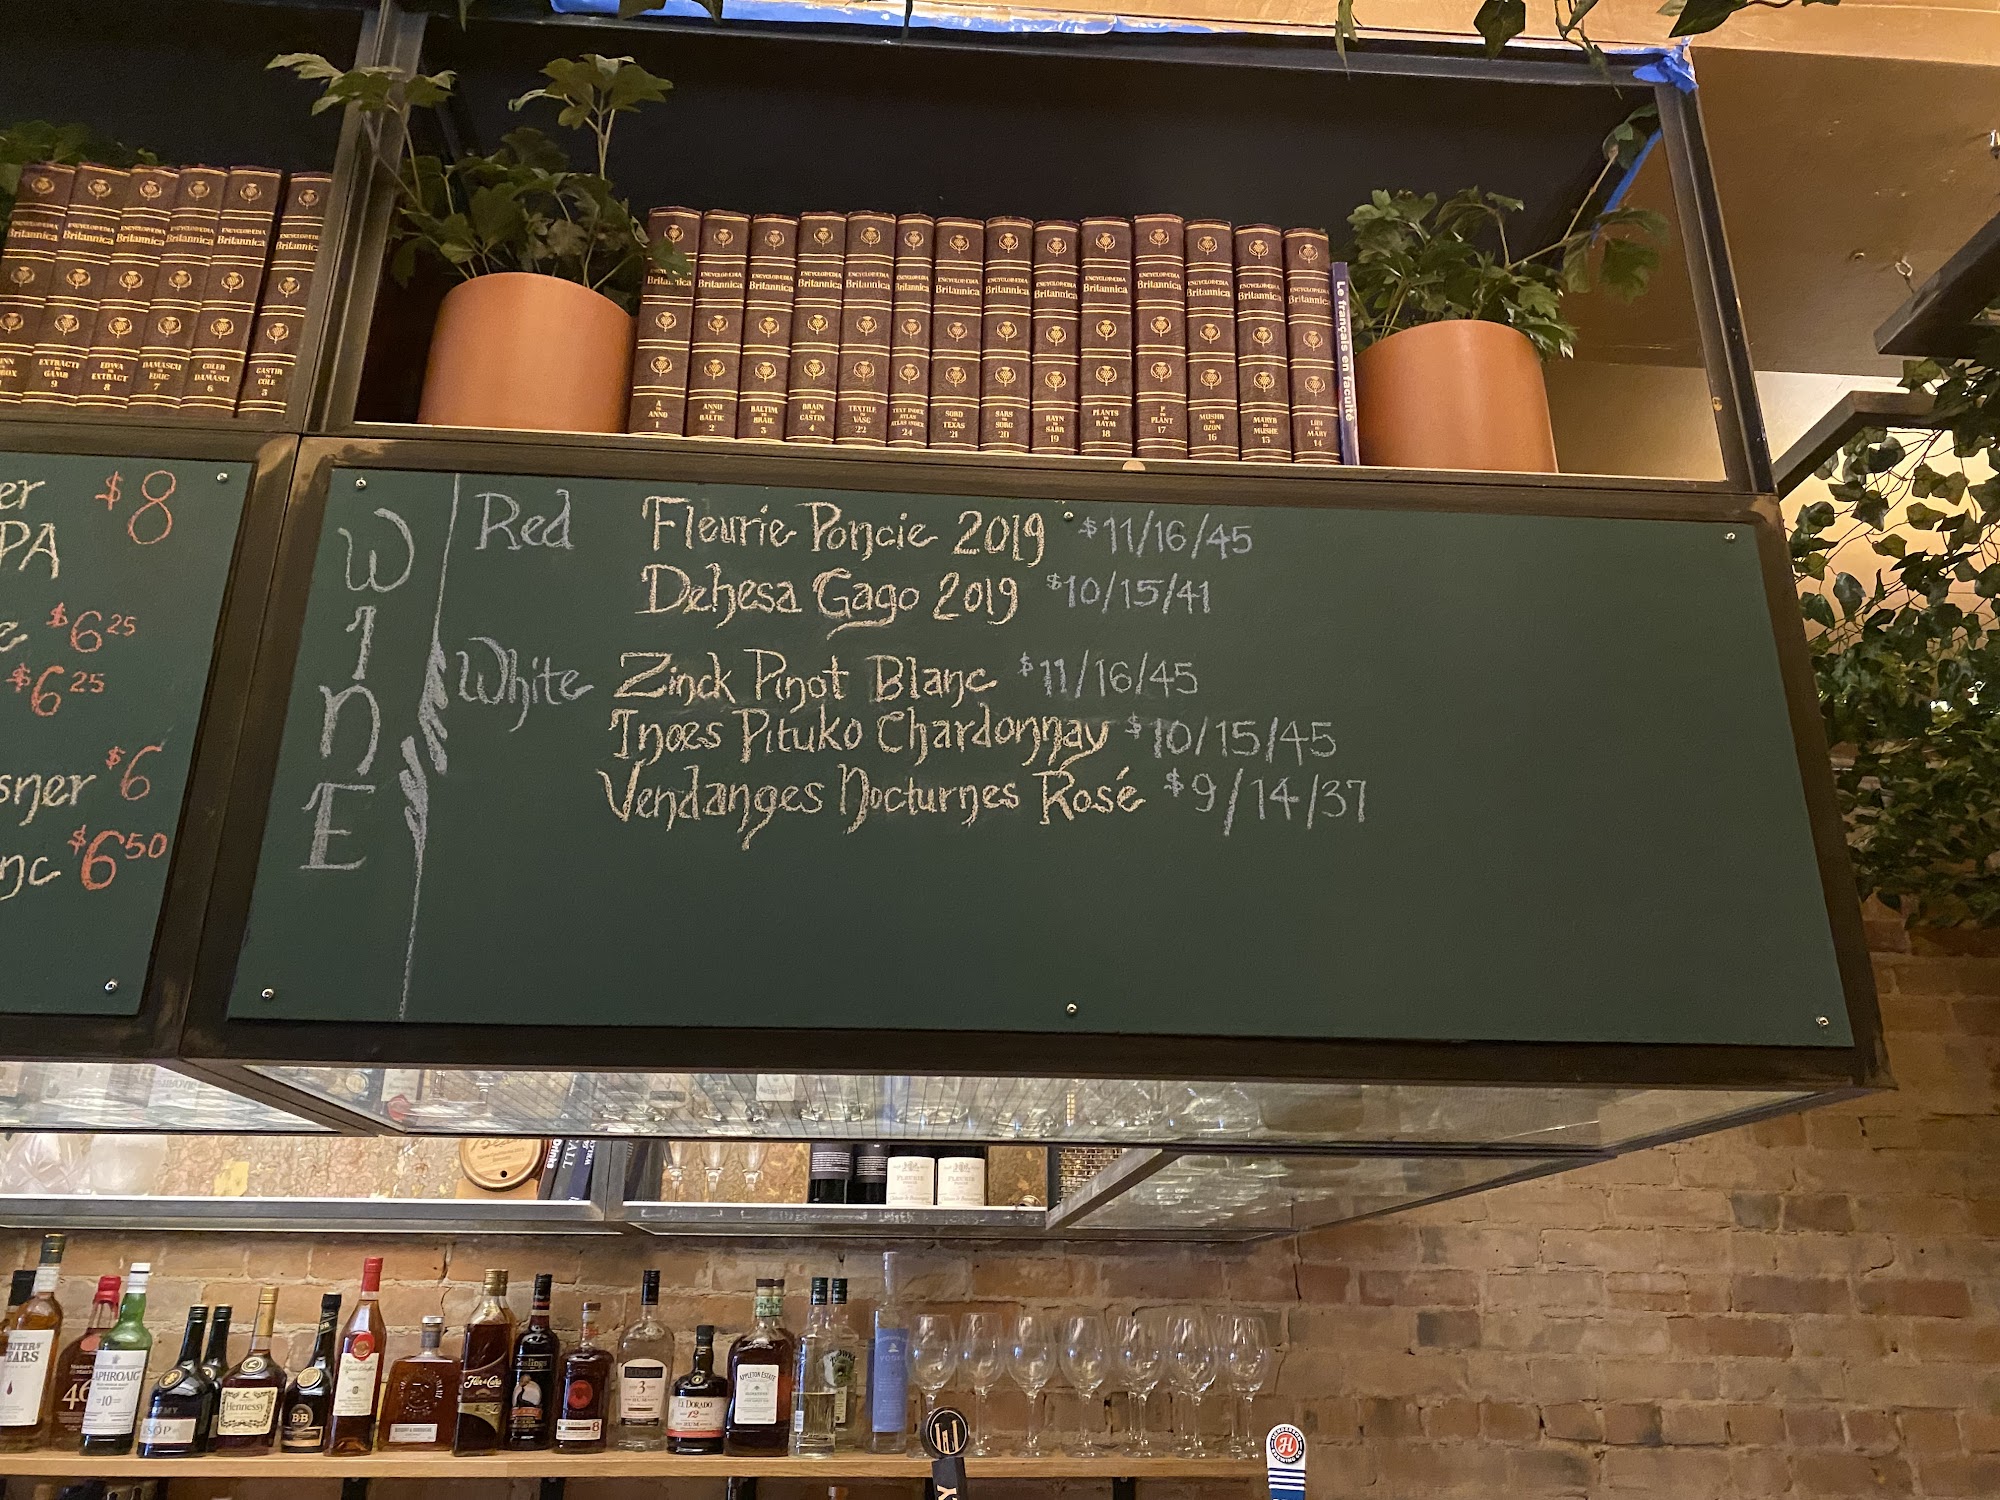 ENCYCLOPÆDIA Britannica
EXTRACTI TO GAMB 9
EDWA TO EXTRACT 8
DAMASCU TO EDUC 7
COLEB TO DAMASCI 6
CASTIR TO COLE 5
A TO ANNO 1
ANNU TO BALTIC 2
BALTIM TO BRAIL 3
BRAIN TO CASTIN 4
TEXTILE TO VASE 22
TEXT INDEX ATLAS ATLAS INDEX 24
SORD TO TEXAS 21
SARS TO SORC 20
RAYN TO SARR 19
PLANTS TO RAYM 18
P TO PLANT 17
MUSHR TO OZON 16
MARYB TO MUSHE 15
LIGH TO MARY 14
Le français en faculté
er $8
PA
e $6 25
$6 25
sner $6
nc $6 50
WINE
Red Fleurie Poncie 2019 $11/16/45
Dehesa Gago 2019 $10/15/41
White Zinck Pinot Blanc $11/16/45
Inoes Pituko Chardonnay $10/15/45
Vendanges Nocturnes Rosé $9/14/37
FLEURIE
FLEURIE
WRITERS' TEARS
46
LAPHROAIG
10
VSOP
Hennessy
B&B
EL DORADO
12
RUM
3
8
APPLETON ESTATE
VODKA
H